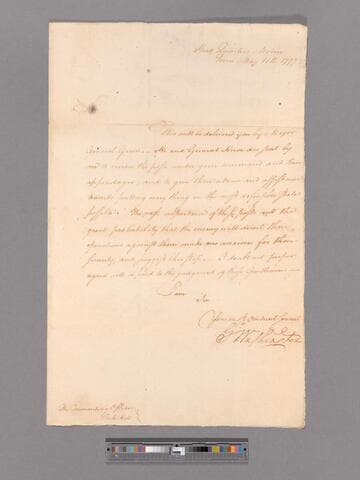 Head Quarters Morris
Town May 11th 1777
This will be delivered you by Major
General Greene. He and General Knox are sent by
me to review the posts under your command and their
appendages, and to give their advice and assistance
towards putting every thing in the most defensible state
possible. The vast importance of these posts and the
great probability that the enemy will direct their
operations against them make me anxious for their
security, and
aged with a just to the judgment of these Gentlemen
I am
Sir
Your most Obedient Servant
Go Washington
The Commanding Officer
Peeks Kill